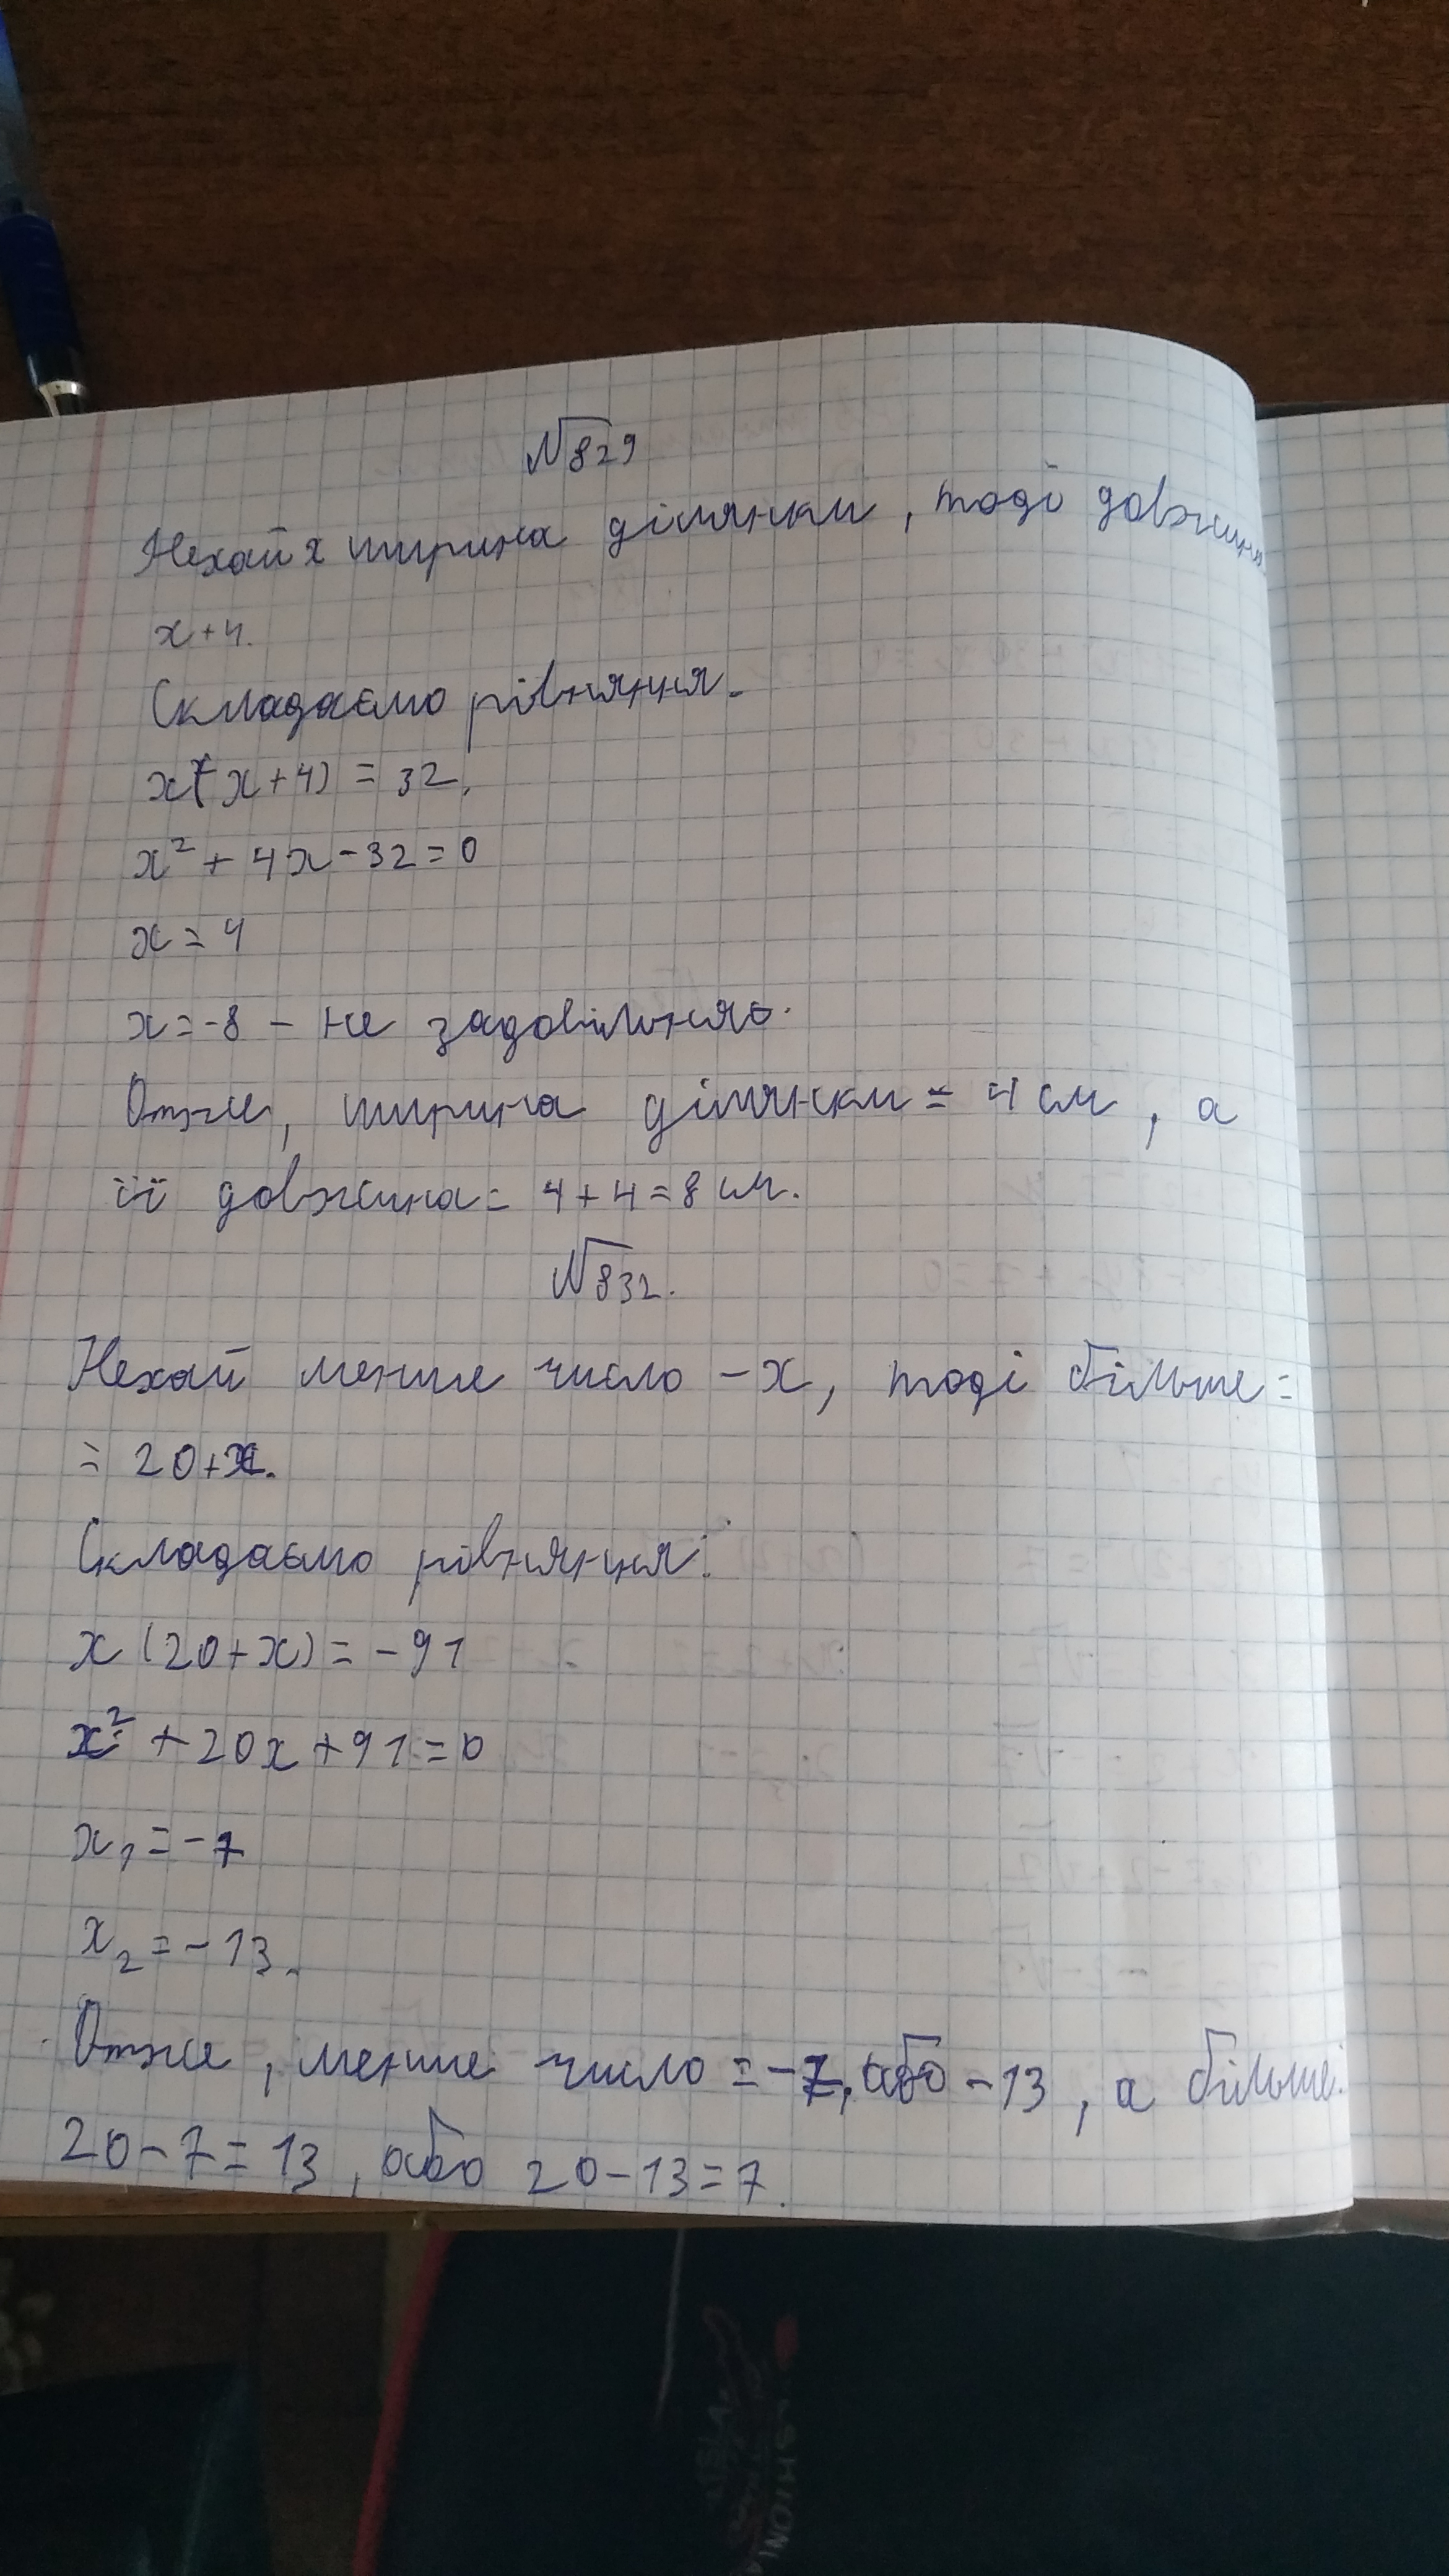 №829
Нехай x ширина ділянки, тоді довжина
x+4.
Складаємо рівняння.
x(x+4) = 32.
x² + 4x - 32 = 0
x = 4
x = -8 - не задовільняє.
Отже, ширина ділянки = 4 см, а
її довжина = 4 + 4 = 8 см.
№832.
Нехай менше число - x, тоді більше =
= 20+x.
Складаємо рівняння:
x (20+x) = -91
x² + 20x + 91 = 0
x₁ = -7
x₂ = -13.
Отже, менше число = -7, або -13, а більше:
20 - 7 = 13, або 20 - 13 = 7.